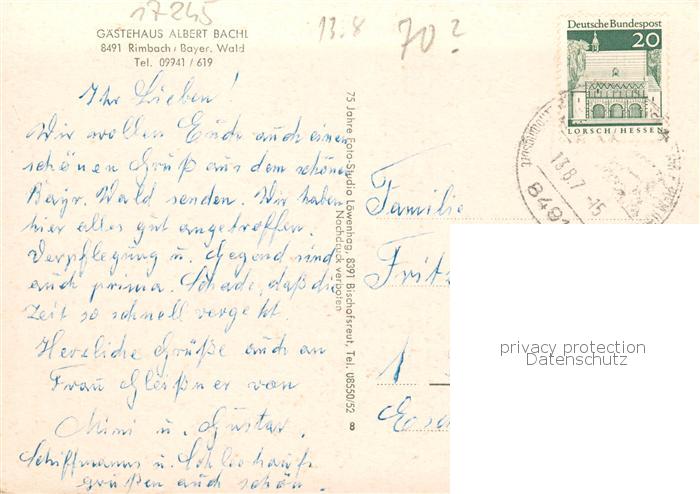 17245
13.8
70?
GÄSTEHAUS ALBERT BACHL
8491 Rimbach / Bayer. Wald
Tel. 09941 / 619
Ihr Lieben!
Wir wollen Euch auch einen
schönen Gruß aus dem schönen
Bayr. Wald senden. Wir haben
hier alles gut angetroffen.
Verpflegung u. Gegend sind
auch prima. Schade, daß die
Zeit so schnell vergeht.
Herzliche Grüße auch an
Frau Gleißner von
Mimi u. Gustav.
Schiffmanns u.
grüßen auch schön.
75 Jahre Foto-Studio Löwenhag, 8391 Bischofsreut, Tel. 08550/52 8
Nachdruck verboten
Deutsche Bundespost
20
LORSCH/HESSEN
13.8.7 -15
8491
Familie
Fritz
1
privacy protection
Datenschutz